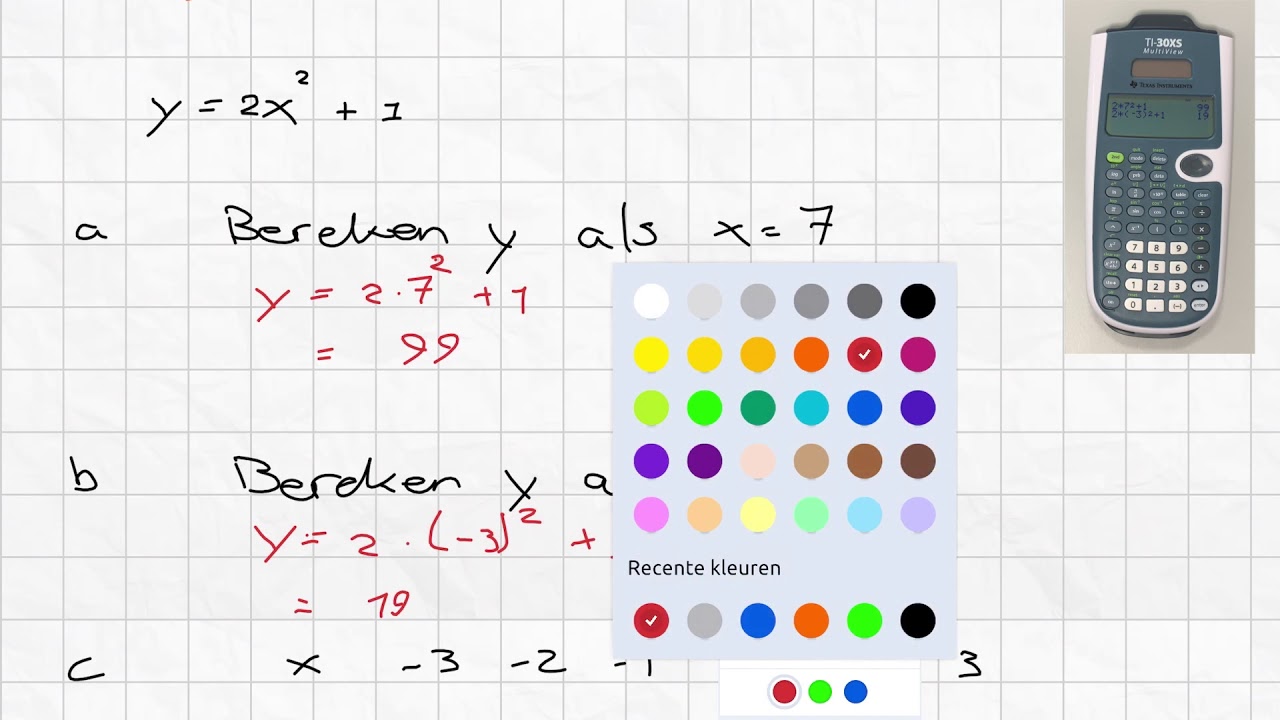 y = 2x² + 1
a Bereken y als x = 7
y = 2 · 7² + 1
= 99
b Bereken y a
y = 2 · (-3)² +
= 19
c x -3 -2 -1 3
Recente kleuren
TI-30XS
MultiView
TEXAS INSTRUMENTS
2*7²+1 99
2*(-3)²+1 19
7 8 9
4 5 6
1 2 3
0 . (-)